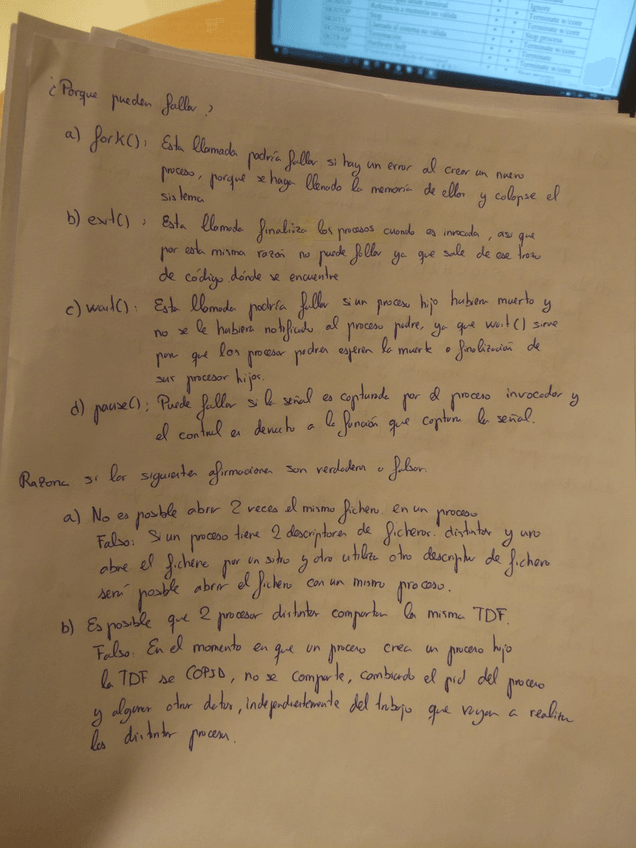 ¿Porque pueden fallar?
a) fork(): Esta llamada podría fallar si hay un error al crear un nuevo
proceso, porque se haya llenado la memoria de ellos y colapse el
sistema
b) exit(): Esta llamada finaliza los procesos cuando es invocada, asi que
por esta misma razón no puede fallar ya que sale de ese trozo
de código dónde se encuentre
c) wait(): Esta llamada podría fallar si un proceso hijo hubiera muerto y
no se le hubiera notificado al proceso padre, ya que wait() sirve
para que los procesos padres esperen la muerte o finalización de
sus procesos hijos.
d) pause(): Puede fallar si la señal es capturada por el proceso invocador y
el control es devuelto a la función que captura la señal.
Razona si las siguientes afirmaciones son verdaderas o falsas.
a) No es posible abrir 2 veces el mismo fichero en un proceso
Falso: Si un proceso tiene 2 descriptores de ficheros distintos y uno
abre el fichero por un sitio y otro utiliza otro descriptor de fichero
será posible abrir el fichero con un mismo proceso.
b) Es posible que 2 procesos distintos compartan la misma TDF.
Falso: En el momento en que un proceso crea un proceso hijo
la TDF se COPIA, no se comparte, cambiando el pid del proceso
y algunos otros datos, independientemente del trabajo que vayan a realizar
los distintos procesos.